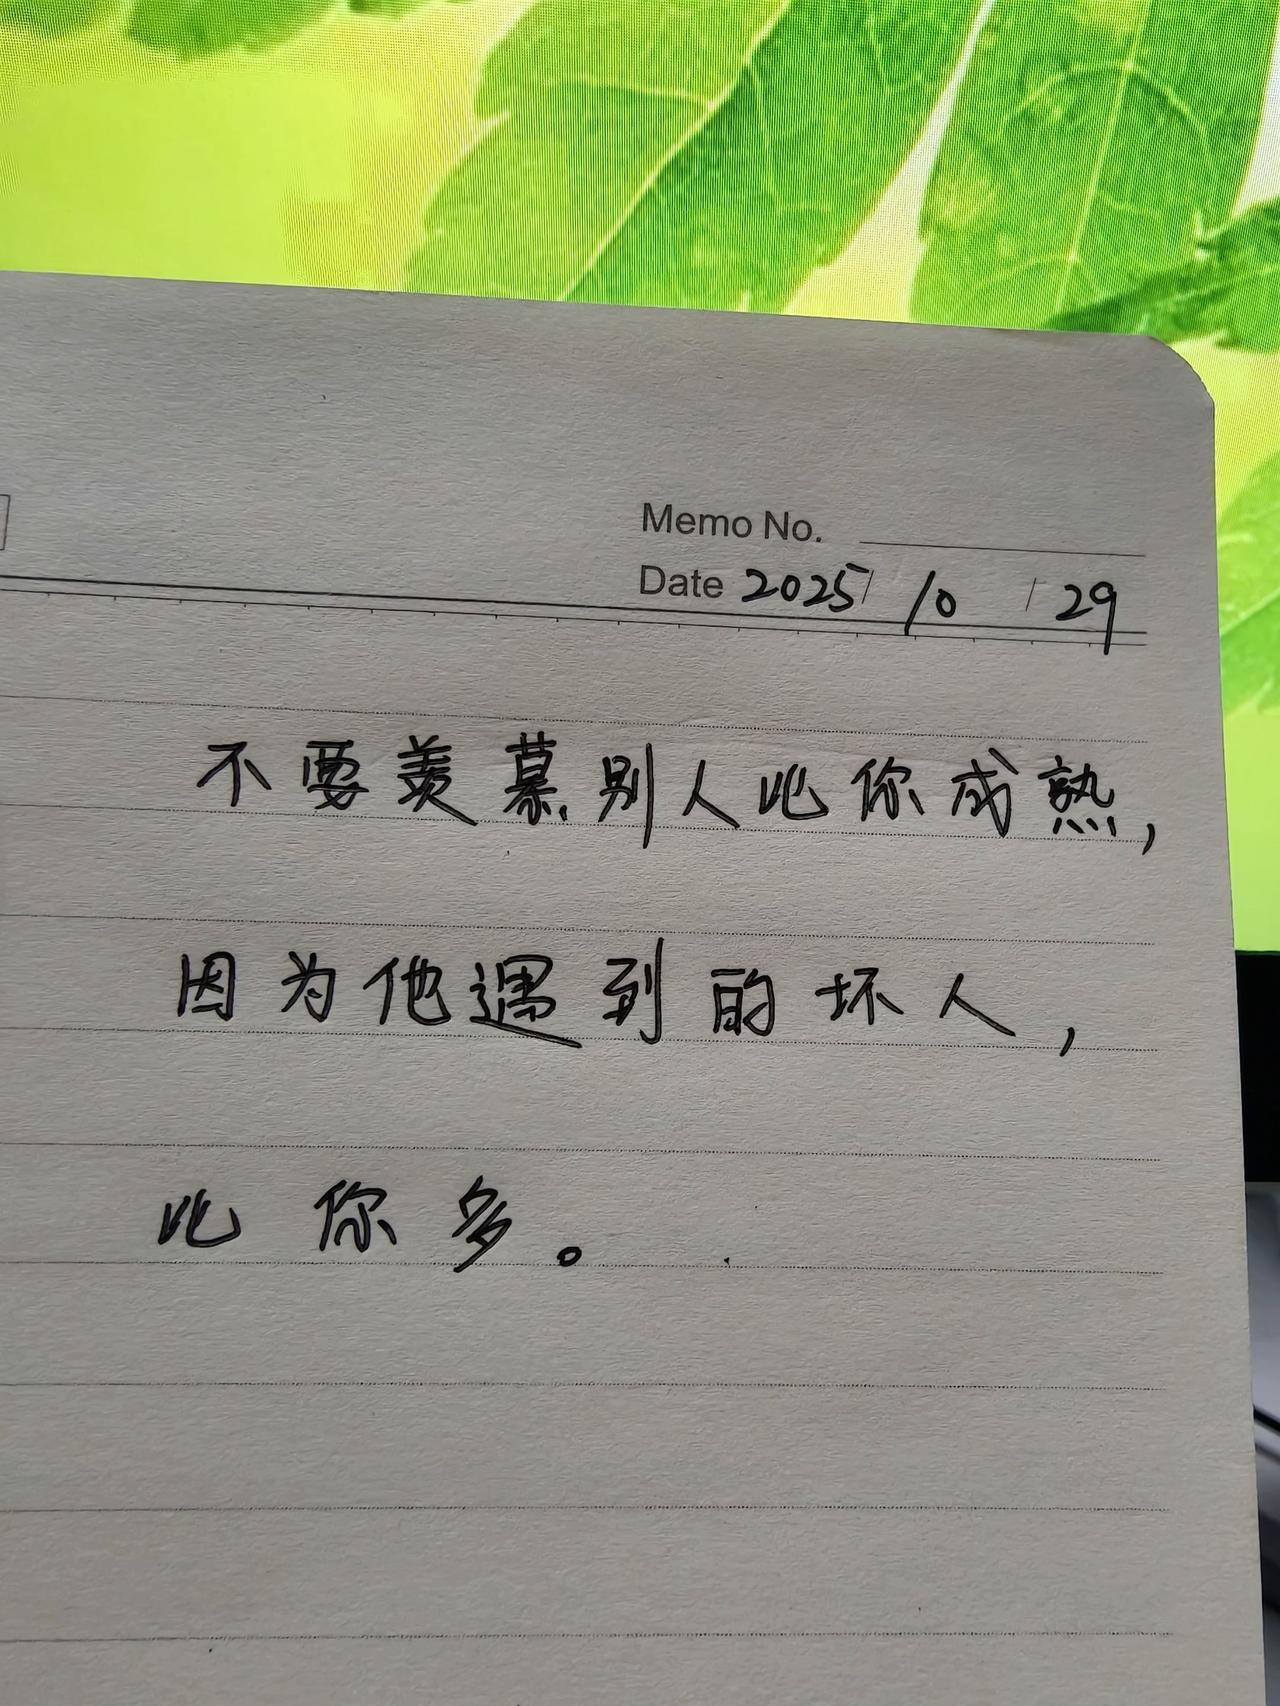 Memo No.
Date 2025/10/29
不要羡慕别人比你成熟,
因为他遇到的坏人,
比你多。